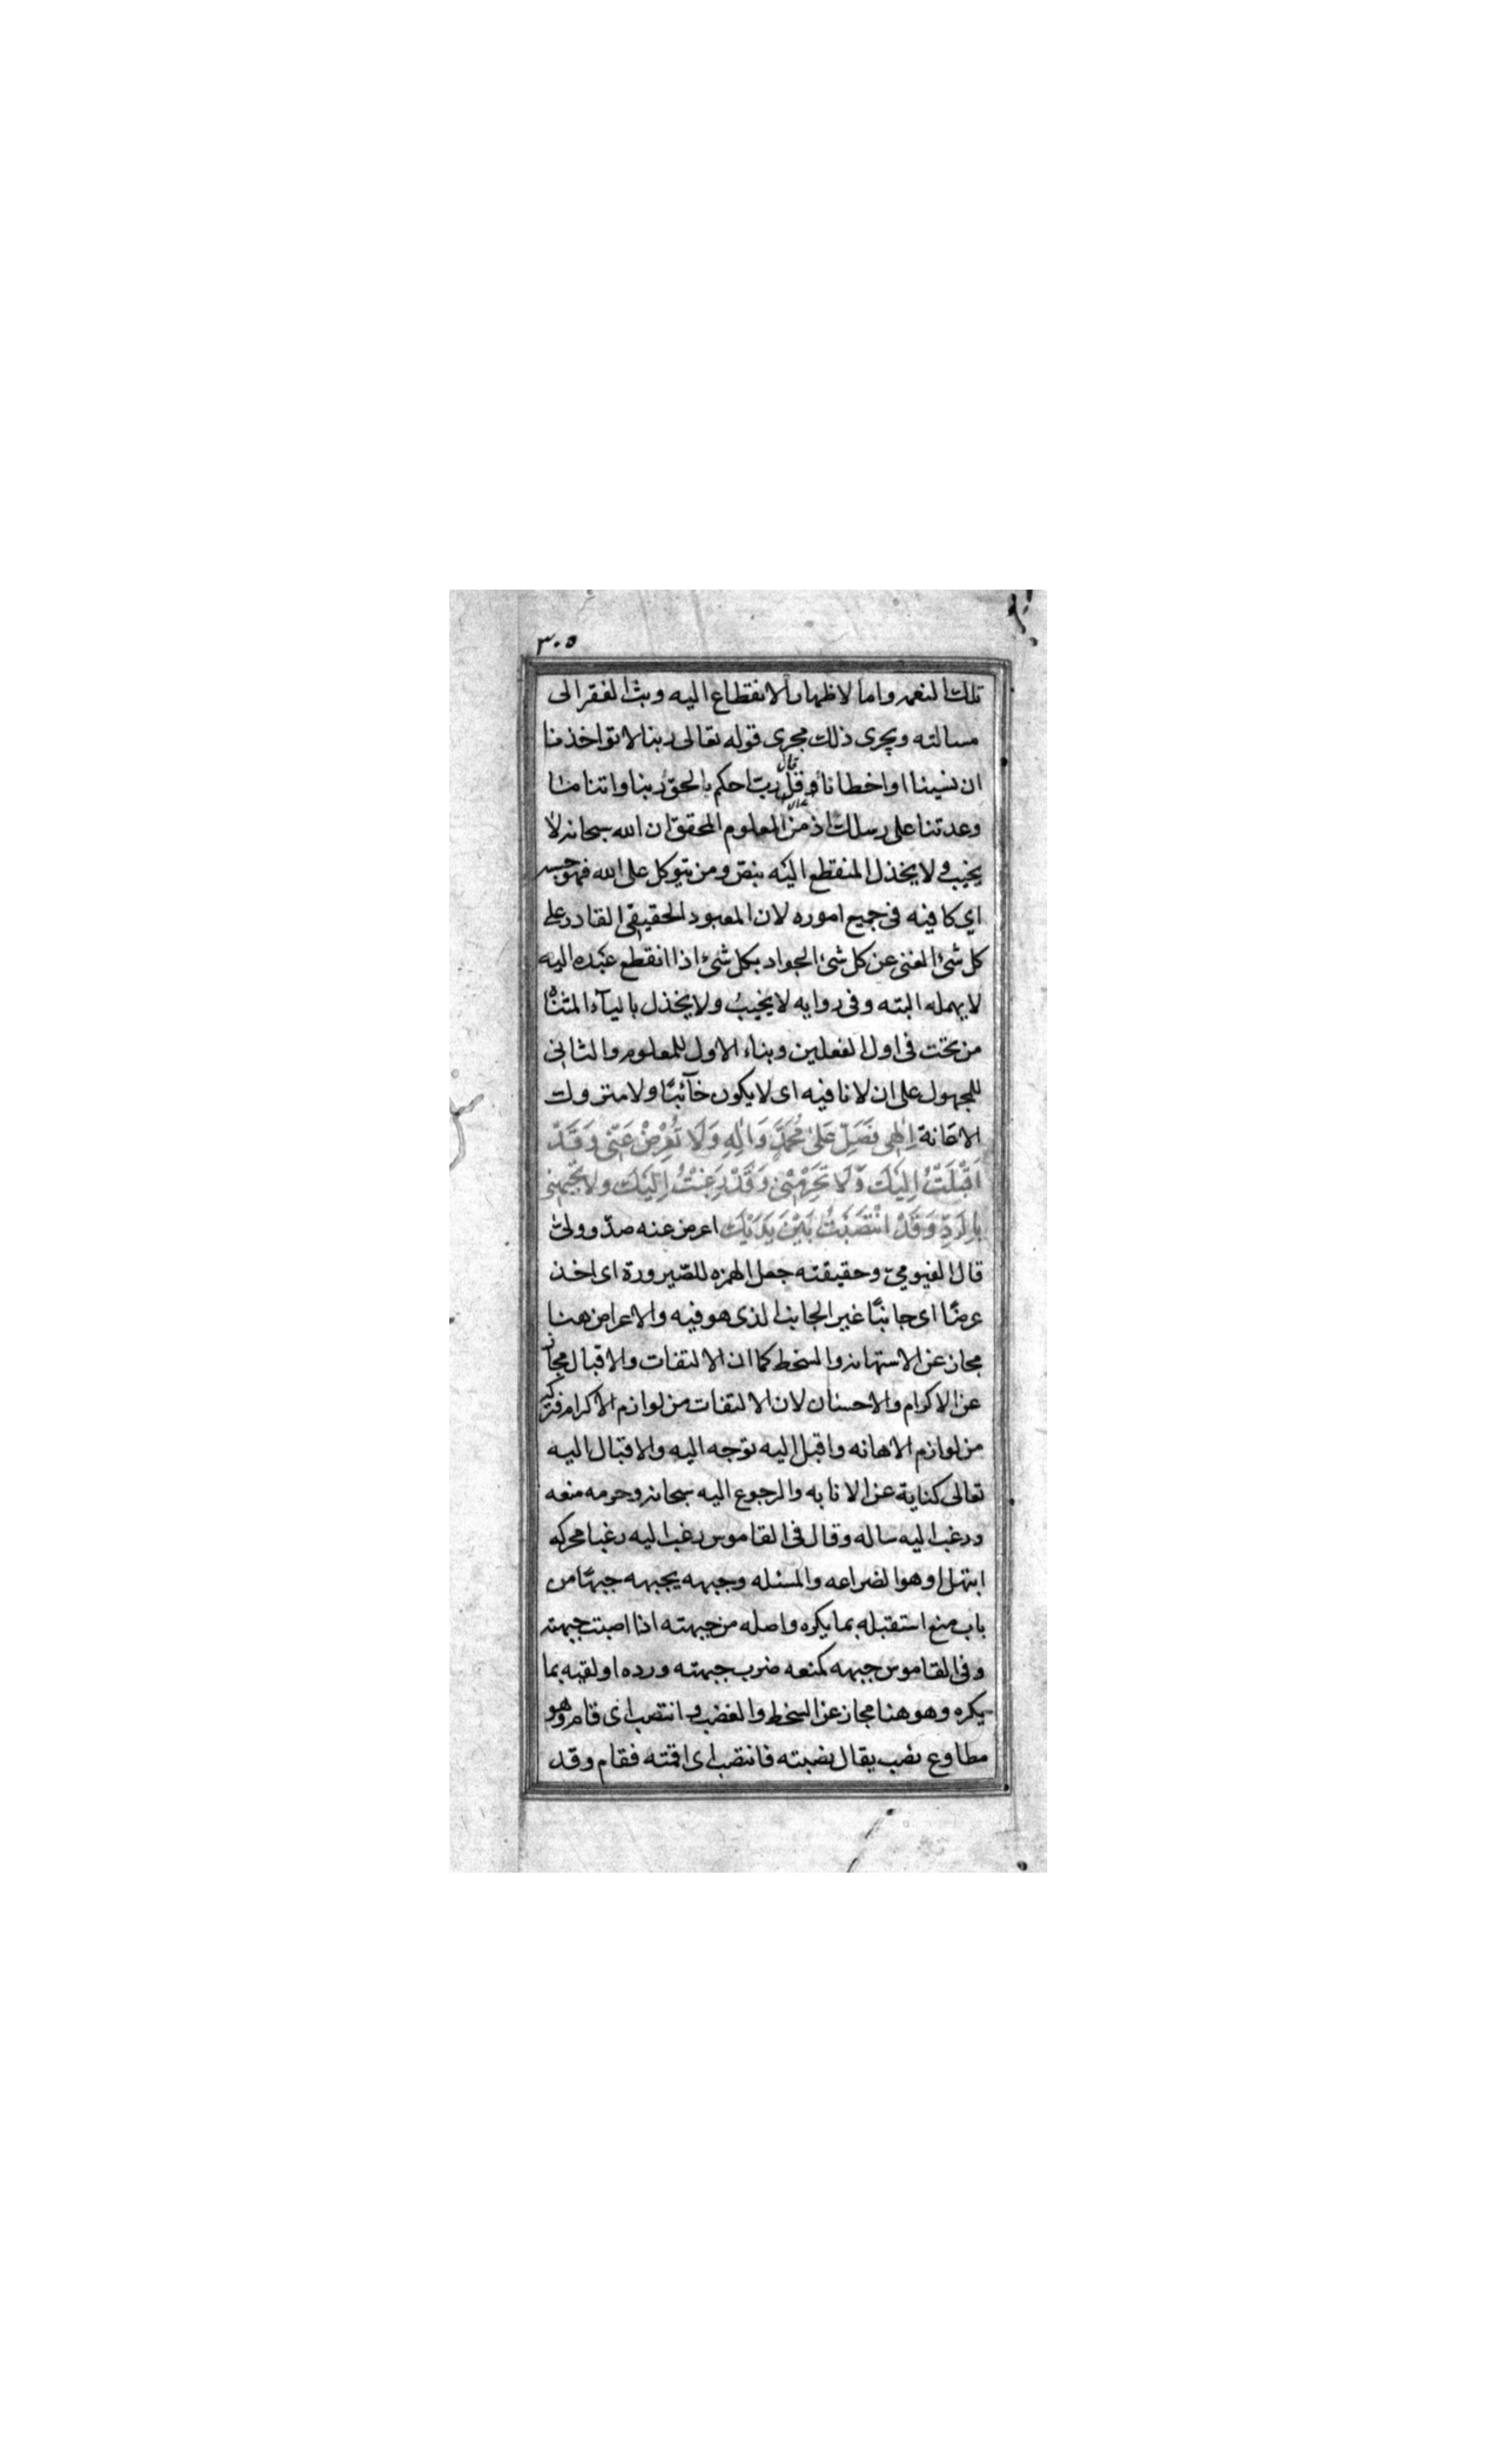 ٣٠٥
تلك النعم واما لاظهار الانقطاع اليه وبث الفقر الى
مسالته ويجرى ذلك مجرى قوله تعالى ربنا لا تواخذنا
ان نسينا او اخطانا و قل رب احكم بالحق ربنا واتنا ما
قال
وعدتنا على رسلك اذ من المعلوم المحقق ان الله سبحانه لا
يخيب ولا يخذل المنقطع اليه بنص ومن يتوكل على الله فهو حسبه
اي كافيه في جميع اموره لان المعبود الحقيقي القادر على
كل شئ الغنى عن كل شئ الجواد بكل شئ اذا انقطع عبده اليه
لا يهمله البته وفى روايه لا يخيب ولا يخذل بالياء المثناه
من تحت فى اول الفعلين وبناء الاول للمعلوم والثانى
للمجهول على ان لا نافيه اى لا يكون خآئبًا ولا متروك
الاعانة اِلٰهى فَصَلِّ عَلىٰ مُحَمَّدٍ وَاٰلِهِ وَلَا تُعْرِضْ عَنّى وَقَدْ
اَقْبَلْتُ اِلَيْكَ وَلَا تَحْرِمْنى وَقَدْ رَغِبْتُ اِلَيْكَ ولا تجبهنى
بِالرَدِّ وَقَدْ انْتَصَبْتُ بَيْنَ يَدَيْكَ اعرض عنه صدّ وولىٰ
قال الفيومي وحقيقته جعل الهمزه للصّيرورة اى اخذ
عرضًا اى جانبًا غير الجانب الذى هو فيه والاعراض هنا
مجاز عن الاستهانه والسخط كما ان الالتفات والاقبال مجاز
عن الاكرام والاحسان لان الالتفات من لوازم الاكرام وتركه
من لوازم الاهانه واقبل اليه توجه اليه والاقبال اليه
تعالى كناية عن الانابه والرجوع اليه سبحانه وحرمه منعه
ورغب اليه ساله وقال فى القاموس رغب اليه رغبا محركه
ابتهل او هو الضراعه والمسئله وجبهه يجبهه جبهًا من
باب منع استقبله بما يكره واصله من جبهته اذا اصبت جبهته
وفى القاموس جبهه كمنعه ضرب جبهته ورده او لقيه بما
يكره وهو هنا مجاز عن السخط والغضب وانتصب اى قام وهو
مطاوع نصب يقال نصبته فانتصب اى اقمته فقام وقد